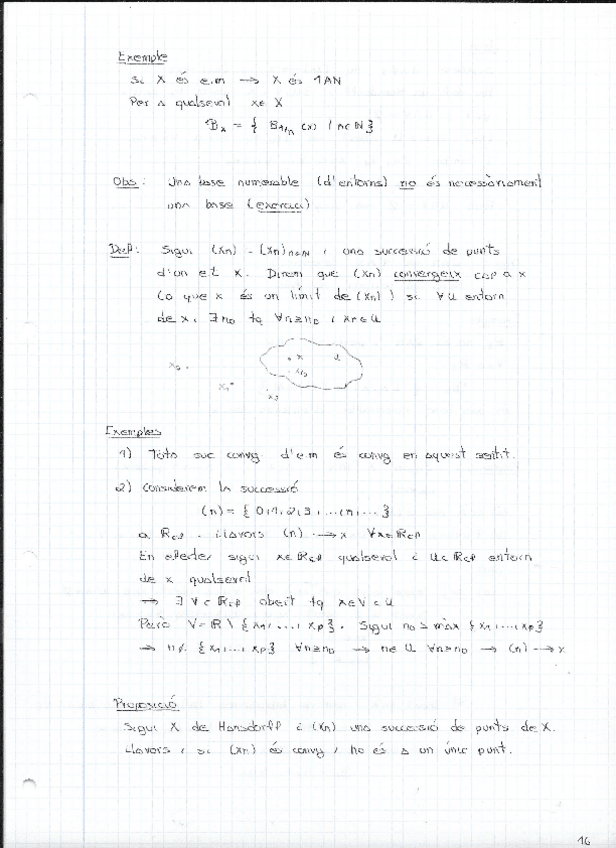 Exemple
Si X és e.m → X és 1AN
Per a qualsevol x∈X
𝓑ₓ = { B₁/ₙ (x) / n∈ℕ }
Obs: Una base numerable (d'entorns) no és necessàriament
una base (exercici)
Def: Sigui (xn) = (xn)n∈ℕ , una successió de punts
d'un e.t X. Direm que (xn) convergeix cap a x
(o que x és un límit de (xn)) si ∀U entorn
de x, ∃n₀ tq ∀n≥n₀ , xn∈U
x₀ . x U
x₁
x₂
Exemples
1) Tota suc convg d'e.m és convg en aquest sentit.
2) Considerem la successió
(n) = { 0,1,2,3,...,n,... }
a ℝcf . Llavors (n) → x ∀x∈ℝcf
En efecte, sigui x∈ℝcf qualsevol i U⊂ℝcf entorn
de x qualsevol
→ ∃ V⊂ℝcf obert tq x∈V⊂U
Però V=ℝ\{x₁,...,xp}. Sigui n₀ ≥ màx {x₁,...,xp}
→ n∉ {x₁,...,xp} ∀n≥n₀ → n∈U ∀n≥n₀ → (n) → x
Proposició
Sigui X de Hausdorff i (xn) una successió de punts de X.
Llavors, si (xn) és convg, ho és a un únic punt.
16